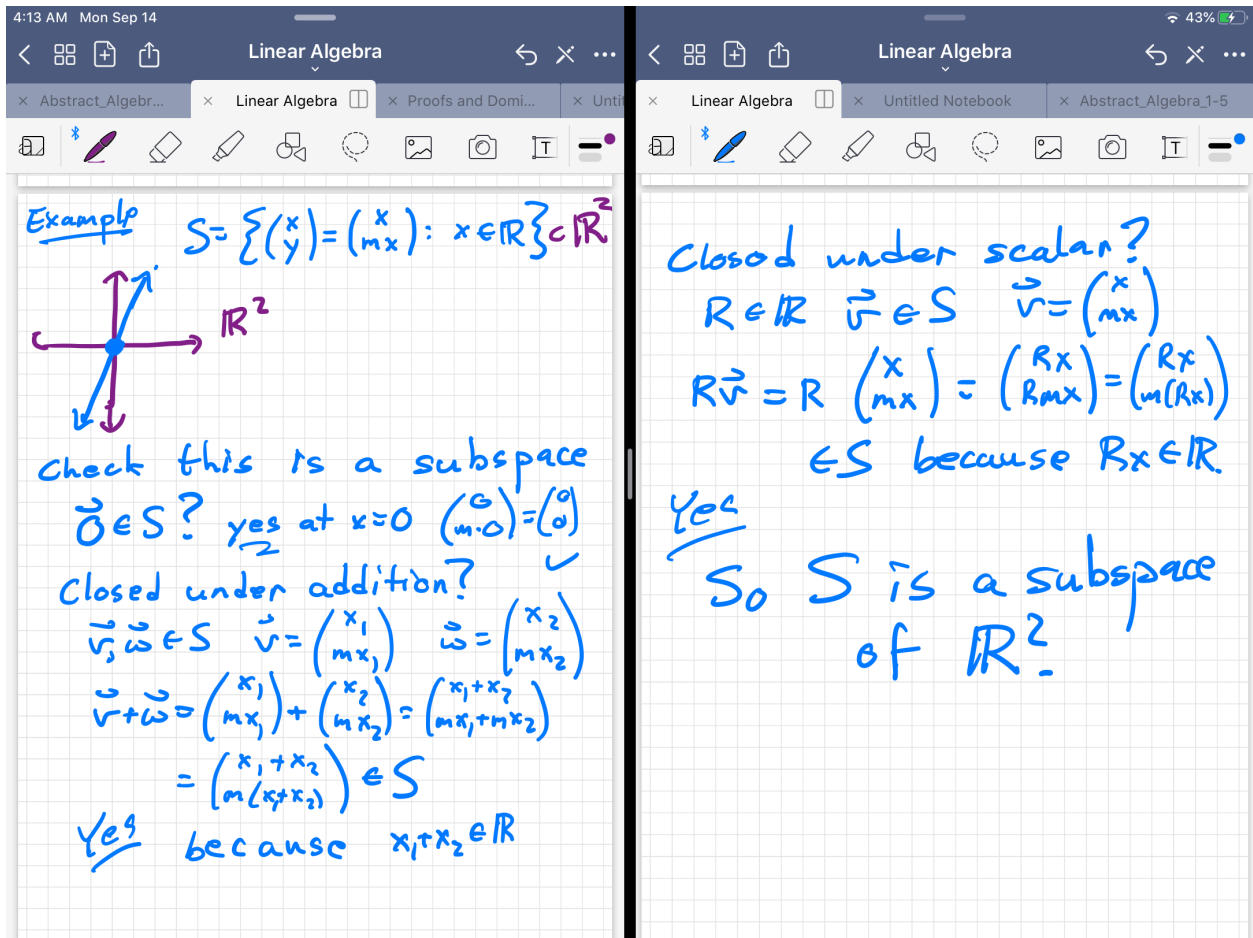 4:13 AM Mon Sep 14
43%
Linear Algebra
Abstract_Algebr...
Linear Algebra
Proofs and Domi...
Unti
T
Example S = {(x y) = (x mx) : x ∈ ℝ} ⊂ ℝ²
ℝ²
Check this is a subspace
0⃗ ∈ S? yes at x=0 (0 m·0) = (0 0) ✓
Closed under addition?
v⃗, w⃗ ∈ S v⃗ = (x₁ mx₁) w⃗ = (x₂ mx₂)
v⃗ + w⃗ = (x₁ mx₁) + (x₂ mx₂) = (x₁+x₂ mx₁+mx₂)
= (x₁+x₂ m(x₁+x₂)) ∈ S
Yes because x₁+x₂ ∈ ℝ
Linear Algebra
Linear Algebra
Untitled Notebook
Abstract_Algebra_1-5
T
Closed under scalar?
R ∈ ℝ v⃗ ∈ S v⃗ = (x mx)
Rv⃗ = R (x mx) = (Rx Rmx) = (Rx m(Rx))
∈ S because Rx ∈ ℝ.
Yes
So S is a subspace
of ℝ².